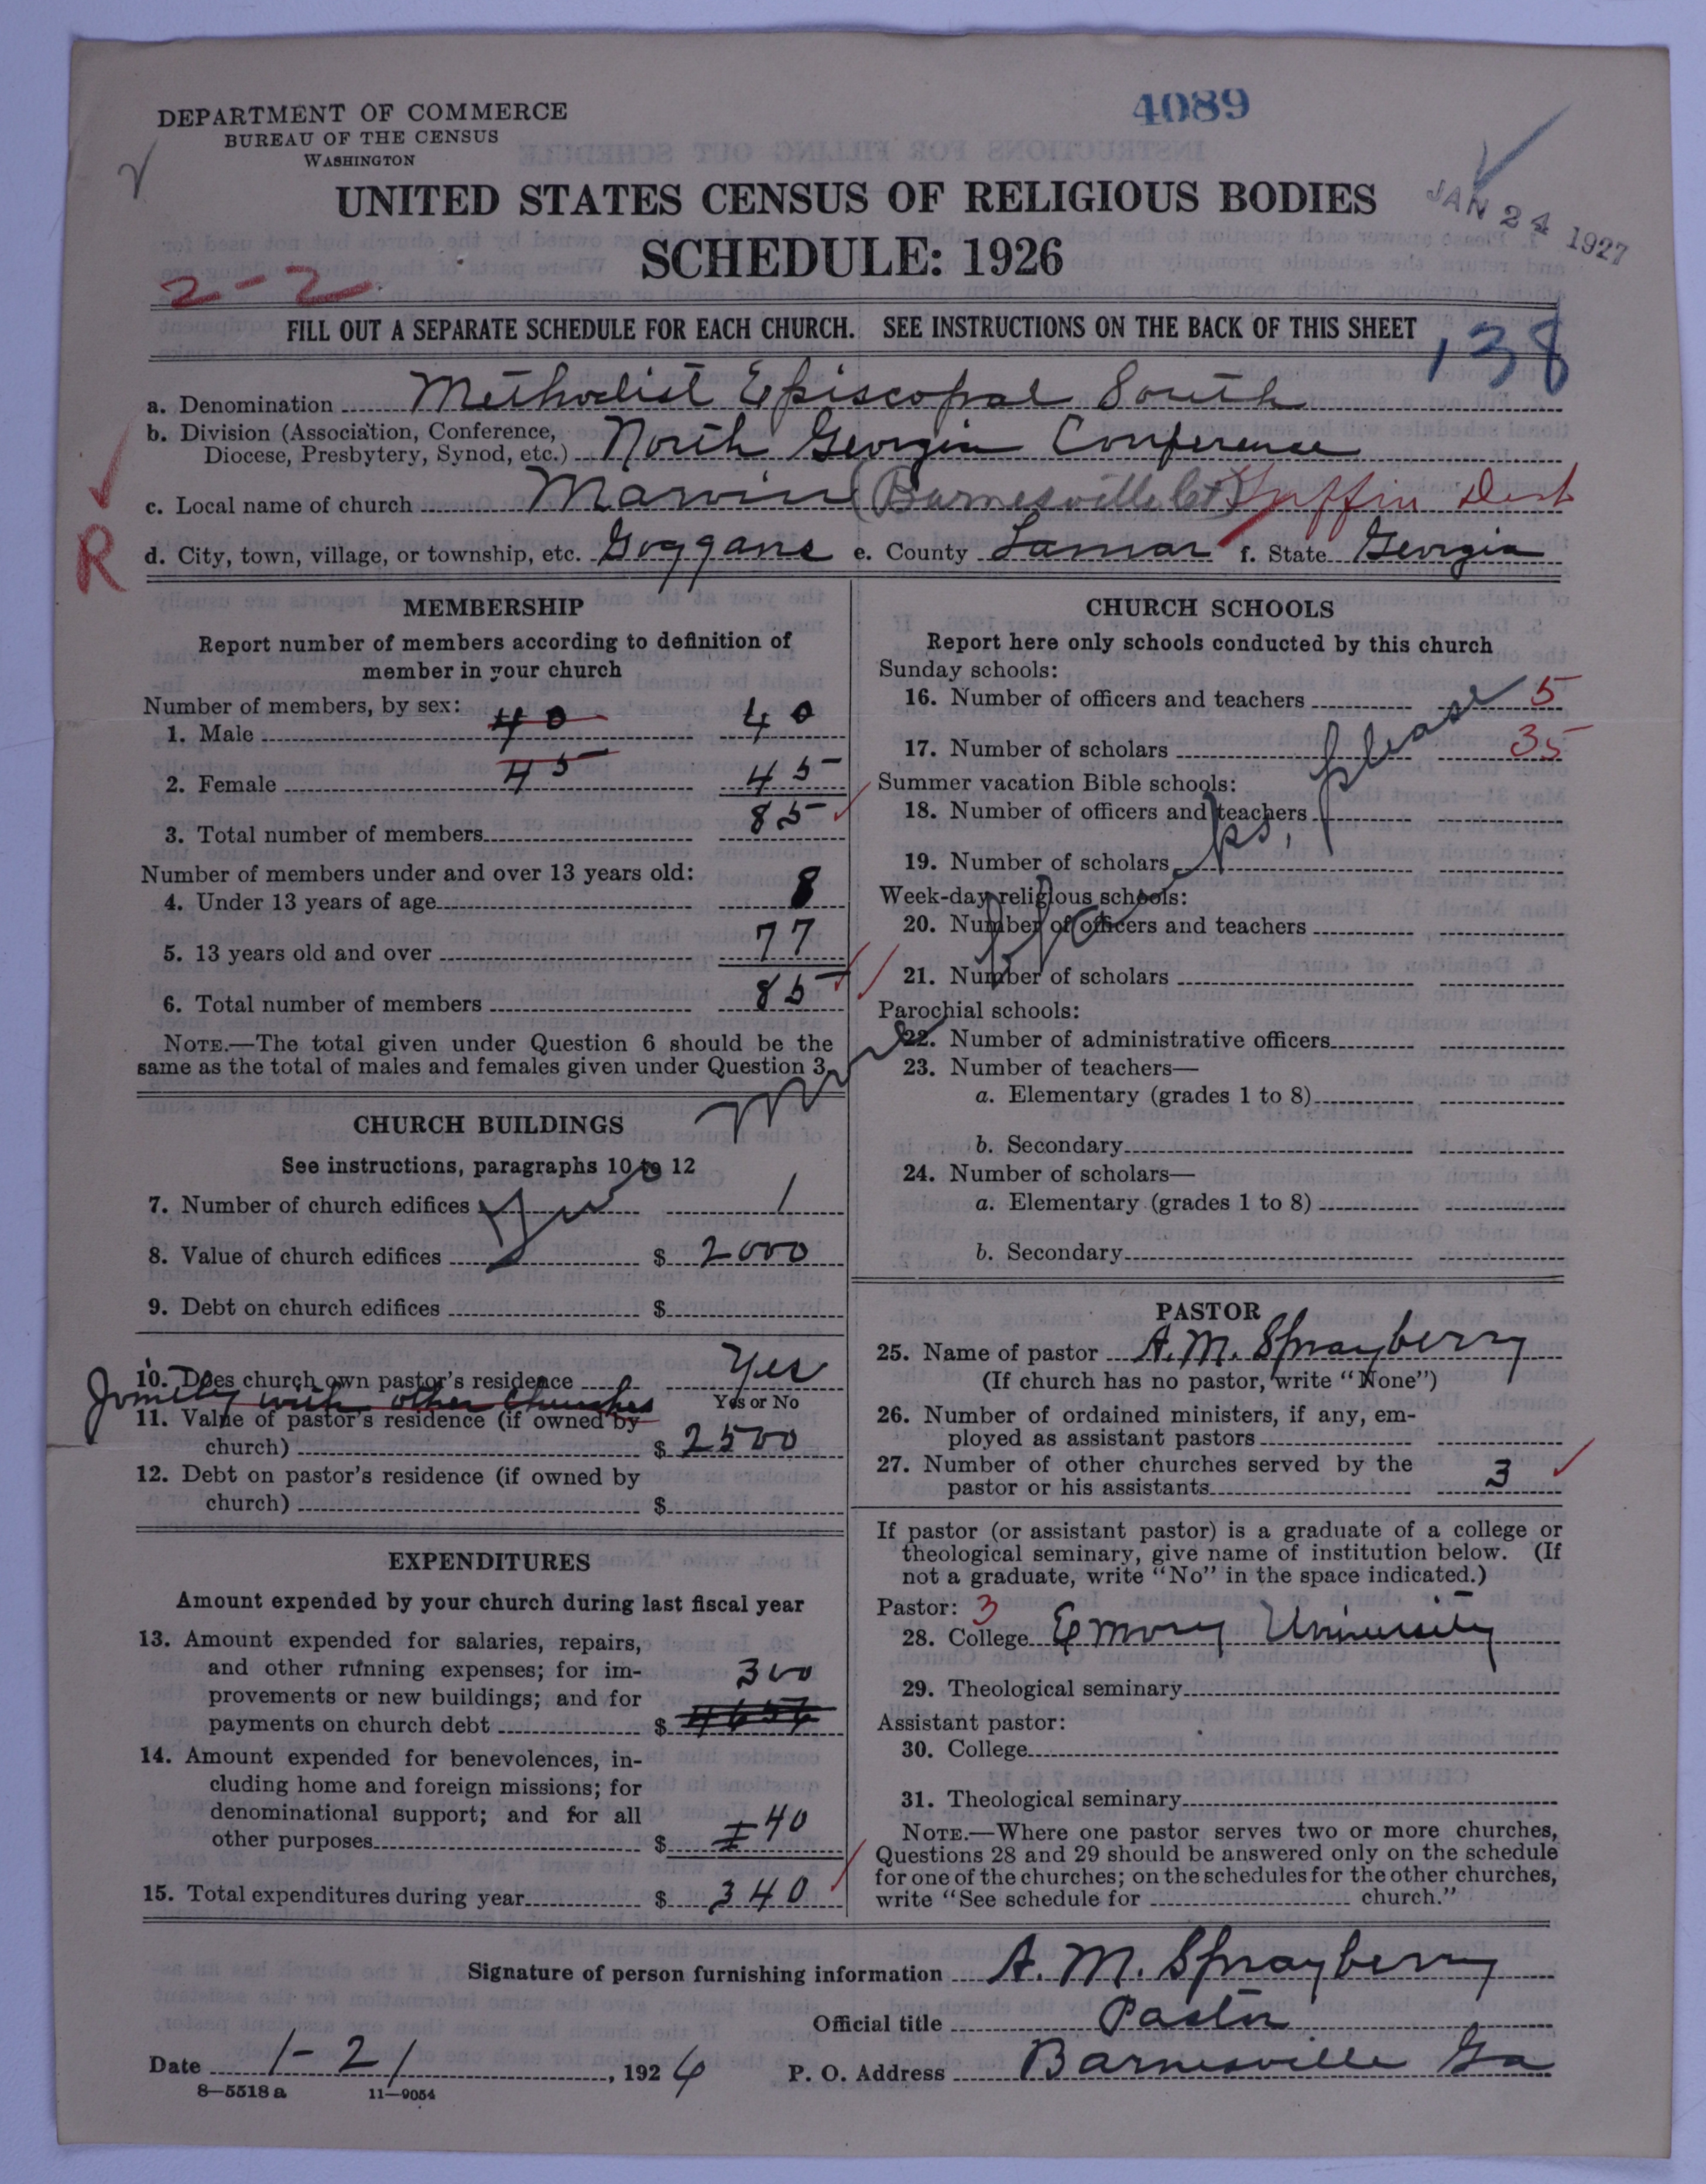 4089
DEPARTMENT OF COMMERCE
BUREAU OF THE CENSUS
WASHINGTON
UNITED STATES CENSUS OF RELIGIOUS BODIES
SCHEDULE: 1926
JAN 24 1927
2-2
FILL OUT A SEPARATE SCHEDULE FOR EACH CHURCH. SEE INSTRUCTIONS ON THE BACK OF THIS SHEET
138
a. Denomination Methodist Episcopal South
b. Division (Association, Conference,
Diocese, Presbytery, Synod, etc.) North Georgia Conference
c. Local name of church Marvin (Barnesville Cct) Griffin Dist
d. City, town, village, or township, etc. Goggans e. County Lamar f. State Georgia
R
MEMBERSHIP
Report number of members according to definition of
member in your church
Number of members, by sex:
1. Male 40 40
2. Female 45 45
3. Total number of members 85
Number of members under and over 13 years old:
4. Under 13 years of age 8
5. 13 years old and over 77
6. Total number of members 85
NOTE.—The total given under Question 6 should be the
same as the total of males and females given under Question 3.
CHURCH BUILDINGS
See instructions, paragraphs 10 to 12
7. Number of church edifices 1
8. Value of church edifices $ 2000
9. Debt on church edifices $
10. Does church own pastor's residence Yes
Yes or No
Jointly with other Churches
11. Value of pastor's residence (if owned by
church) $ 2500
12. Debt on pastor's residence (if owned by
church) $
EXPENDITURES
Amount expended by your church during last fiscal year
13. Amount expended for salaries, repairs,
and other running expenses; for im-
provements or new buildings; and for
payments on church debt $ 300
14. Amount expended for benevolences, in-
cluding home and foreign missions; for
denominational support; and for all
other purposes $ 40
15. Total expenditures during year $ 340
CHURCH SCHOOLS
Report here only schools conducted by this church
Sunday schools:
16. Number of officers and teachers 5
17. Number of scholars 35
Summer vacation Bible schools:
18. Number of officers and teachers
19. Number of scholars
Week-day religious schools:
20. Number of officers and teachers
21. Number of scholars
Parochial schools:
22. Number of administrative officers
23. Number of teachers—
a. Elementary (grades 1 to 8)
b. Secondary
24. Number of scholars—
a. Elementary (grades 1 to 8)
b. Secondary
please
PASTOR
25. Name of pastor A. M. Sprayberry
(If church has no pastor, write "None")
26. Number of ordained ministers, if any, em-
ployed as assistant pastors
27. Number of other churches served by the
pastor or his assistants 3
If pastor (or assistant pastor) is a graduate of a college or
theological seminary, give name of institution below. (If
not a graduate, write "No" in the space indicated.)
Pastor: 3
28. College Emory University
29. Theological seminary
Assistant pastor:
30. College
31. Theological seminary
NOTE.—Where one pastor serves two or more churches,
Questions 28 and 29 should be answered only on the schedule
for one of the churches; on the schedules for the other churches,
write "See schedule for church."
Signature of person furnishing information A. M. Sprayberry
Official title Pastor
Date 1-21, 1926 P. O. Address Barnesville Ga
8—5518 a 11—9054